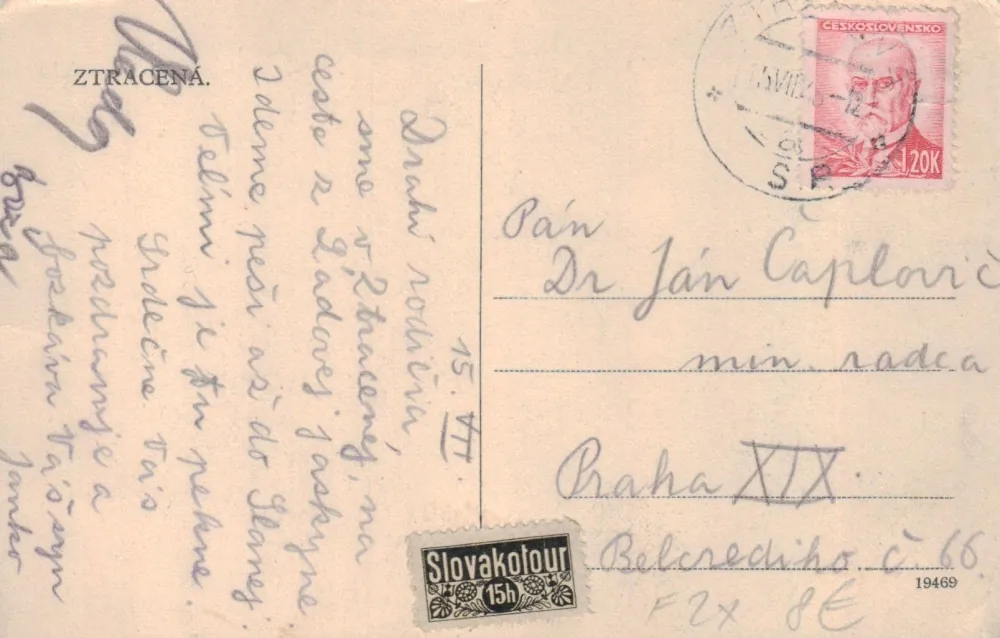 ZTRACENÁ.
15. VII.
Drahí rodičia,
sme v Ztracenej, na
ceste z Ľadovej jaskyne
Ideme peši až do Slanej
Veľmi je tu pekne.
Srdečne Vás
pozdravuje a
boskáva Váš syn
Janko
ČESKOSLOVENSKO
1,20K
S. P.
Pán
Dr Ján Čaplovič
min. radca
Praha XIX.
Belcrediho č. 66
19469
Slovakotour
15h
F2x 8€